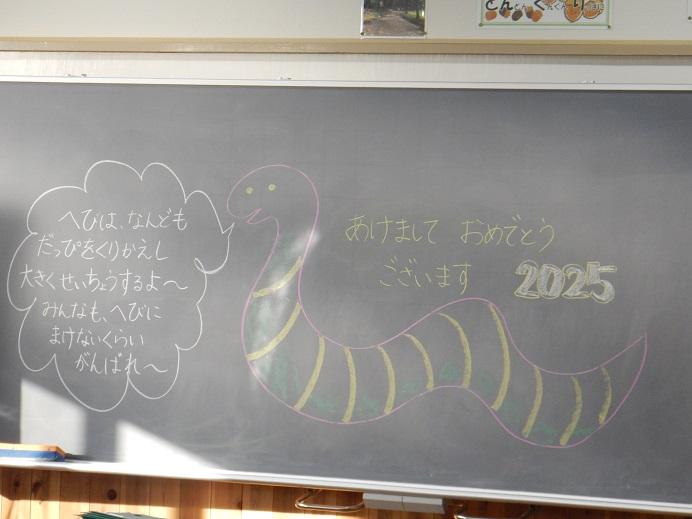 へびは、なんども
だっぴをくりかえし
大きくせいちょうするよ～
みんなも、へびに
まけないくらい
がんばれ～
あけまして おめでとう
ございます 2025